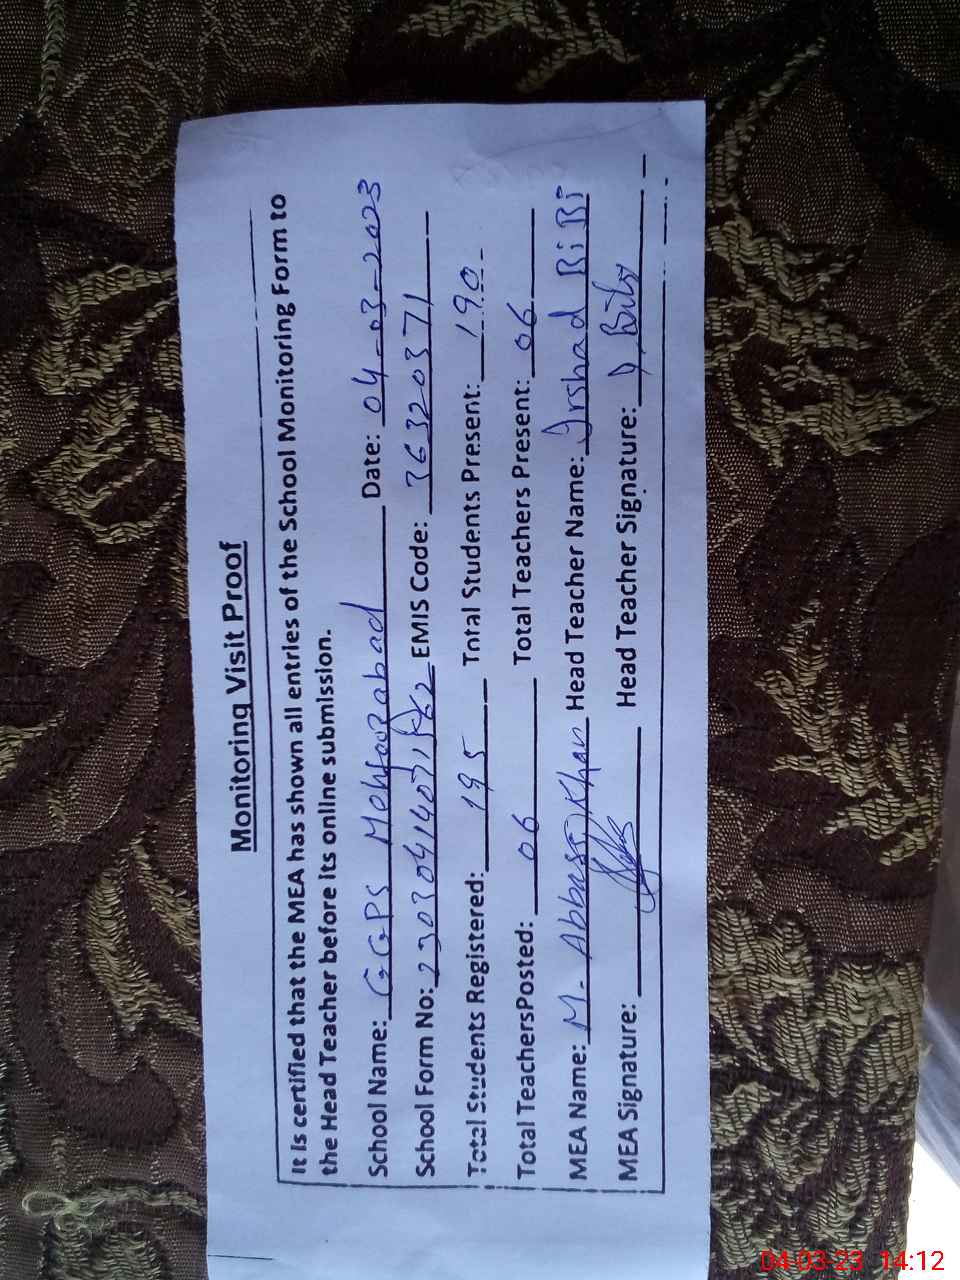 Monitoring Visit Proof
It is certified that the MEA has shown all entries of the School Monitoring Form to
the Head Teacher before its online submission.
School Name: GGPS Mehfoozabad Date: 04-03-2023
School Form No: EMIS Code: 36320371
Total Students Registered: 195 Total Students Present: 190
Total TeachersPosted: 06 Total Teachers Present: 06
MEA Name: M. Abbass Khan Head Teacher Name: Irshad BiBi
MEA Signature: Head Teacher Signature:
04-03-23 14:12